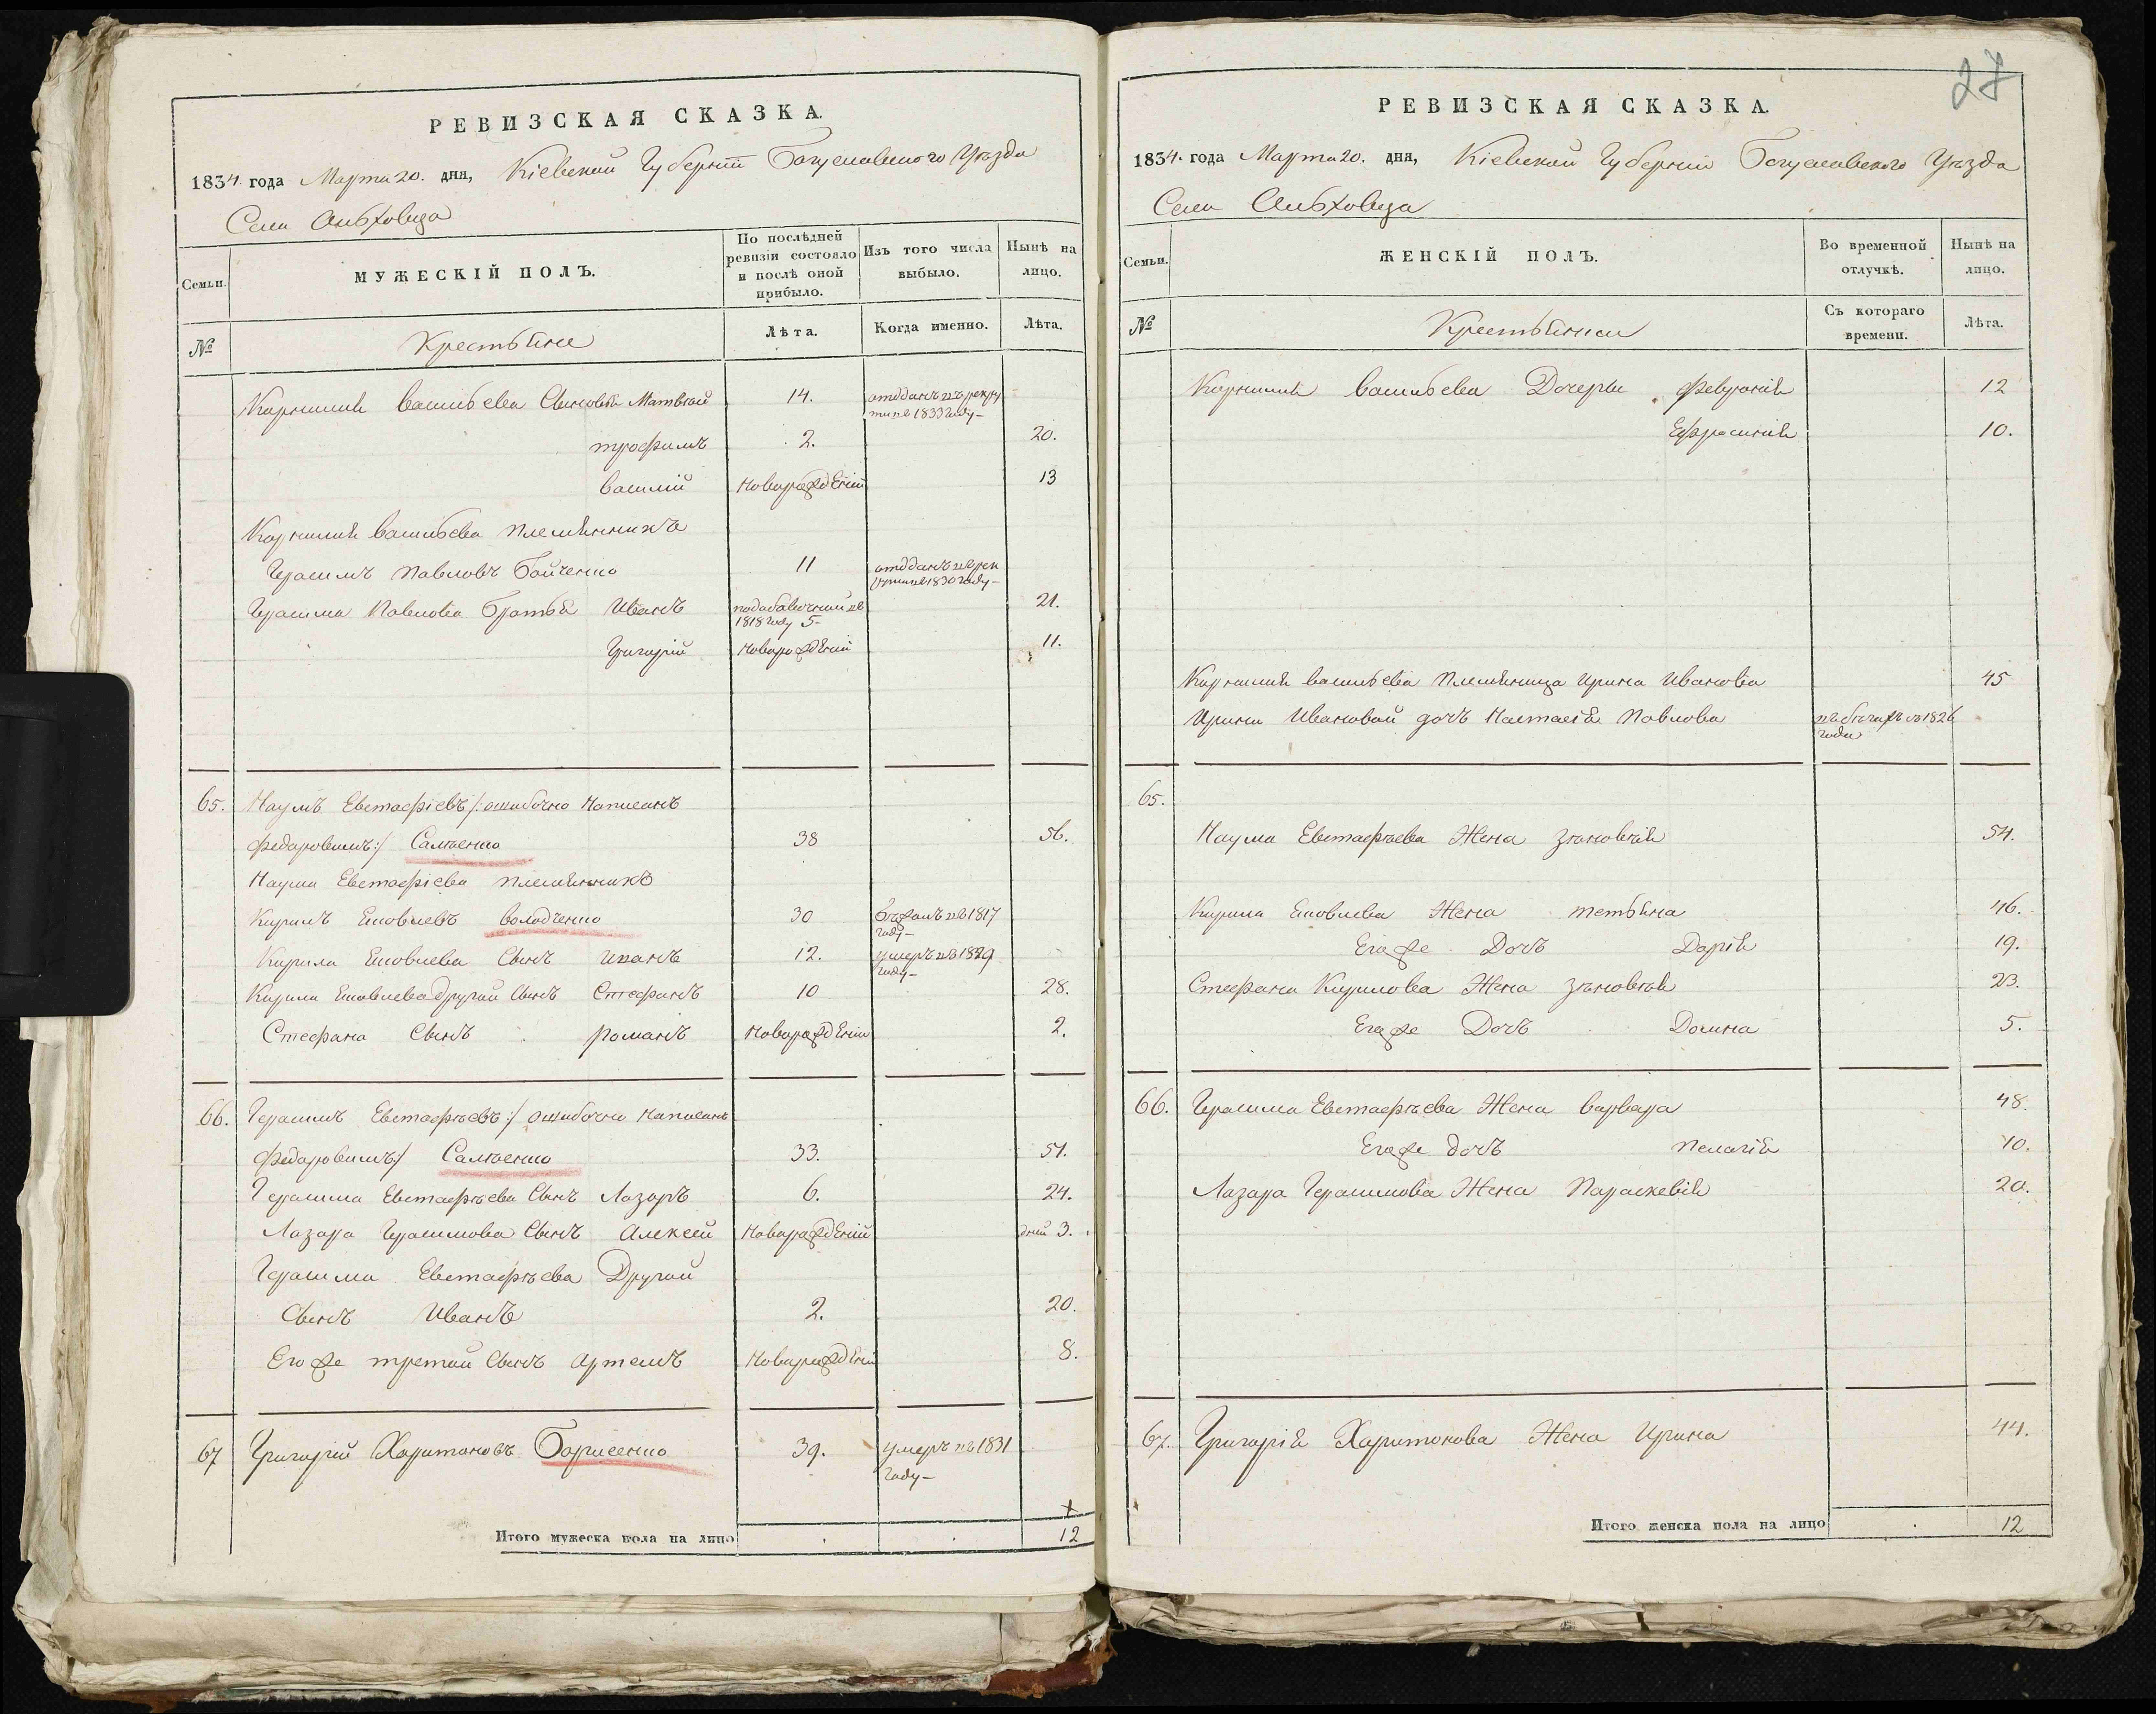 РЕВИЗСКАЯ СКАЗКА.
1834. года Марта 20. дня, Кіевской Губерніи Богуславского Уѣзда
Села Ольховца
Семьи.
МУЖЕСКІЙ ПОЛЪ.
По послѣдней ревизіи состояло и послѣ оной прибыло.
Изъ того числа выбыло.
Нынѣ на лицо.
№
Крестьяне
Лѣта.
Когда именно.
Лѣта.
Корнилия васильева Сыновья Матвѣй 14. отданъ въ рекру
ты въ 1833 году –
трофимъ 2. 20.
василій новорожденій 13
Корнилия васильева племянникъ
Герасимъ Павловъ Бойченко 11 отданъ в рек
руты в 1830 году –
Герасима Павлова Братья Иванъ подобавочный в 21.
1818 году 5-
Григорій новорожденій 11.
65. Наумъ Евстафіевъ /: ошибочно написанъ
федоровимъ:/ Салоенко 38 56.
Наума Евстафіева племянникъ
Кирилъ Яковлевъ володченко 30 бѣжалъ в 1817
году –
Кирила Яковлева Сынъ Иванъ 12. умеръ в 1829
году –
Кирила Яковлева другой Сынъ Стефанъ 10 28.
Стефана Сынъ романъ новорожденій 2.
66. Герасимъ Евстафѣевъ :/ ошибочно написанъ
федоровимъ:/ Салоенко 33. 51.
Герасима Евстафѣева Сынъ Лазаръ 6. 24.
Лазара Герасимова Сынъ Алексей новорожденій дній 3.
Герасима Евстафѣева Другой
Сынъ Иванъ 2. 20.
Его же третой Сынъ Артемъ новорожденій 8.
67 Григорій Харитоновъ Борисенко 39. умеръ в 1831
году –
Итого мужеска пола на лицо 12
27
РЕВИЗСКАЯ СКАЗКА.
1834. года Марта 20. дня, Кіевской Губерніи Богуславского Уѣзда
Села Ольховца
Семьи.
ЖЕНСКІЙ ПОЛЪ.
Во временной отлучкѣ.
Нынѣ на лицо.
№
Крестьянки
Съ котораго времени.
Лѣта.
Корнилия васильева Дочеры февронія 12
Ефросинія 10.
Корнилия васильева племяница Ирина Иванова 45
Ирини Ивановой дочъ Настасія Павлова въ бѣгахъ съ 1826
года
65.
Наума Евстафѣева Жена зѣновѣя 54.
Кирила Яковлева Жена тетьяна 46.
Его же Дочъ Дарія 19.
Стефана Кирилова Жена зѣновѣя 23.
Его же Дочъ Домна 5.
66. Герасима Евстафѣева Жена варвара 48.
Его же дочъ пелагія 10.
Лазара Герасимова Жена Параскевія 20.
67. Григорія Харитонова Жена Ирина 44.
Итого женска пола на лицо 12